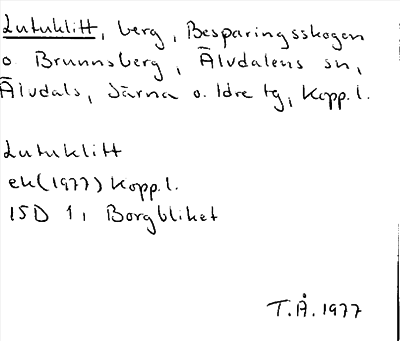 Lutuklitt, berg, Besparingsskogen
o. Brunnsberg, Älvdalens sn,
Älvdals, Särna o. Idre tg, Kopp.l.
Lutuklitt
ek(1977) Kopp.l.
15D 1i Borgbliket
T.Å. 1977